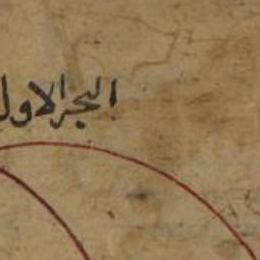 البحر الاول